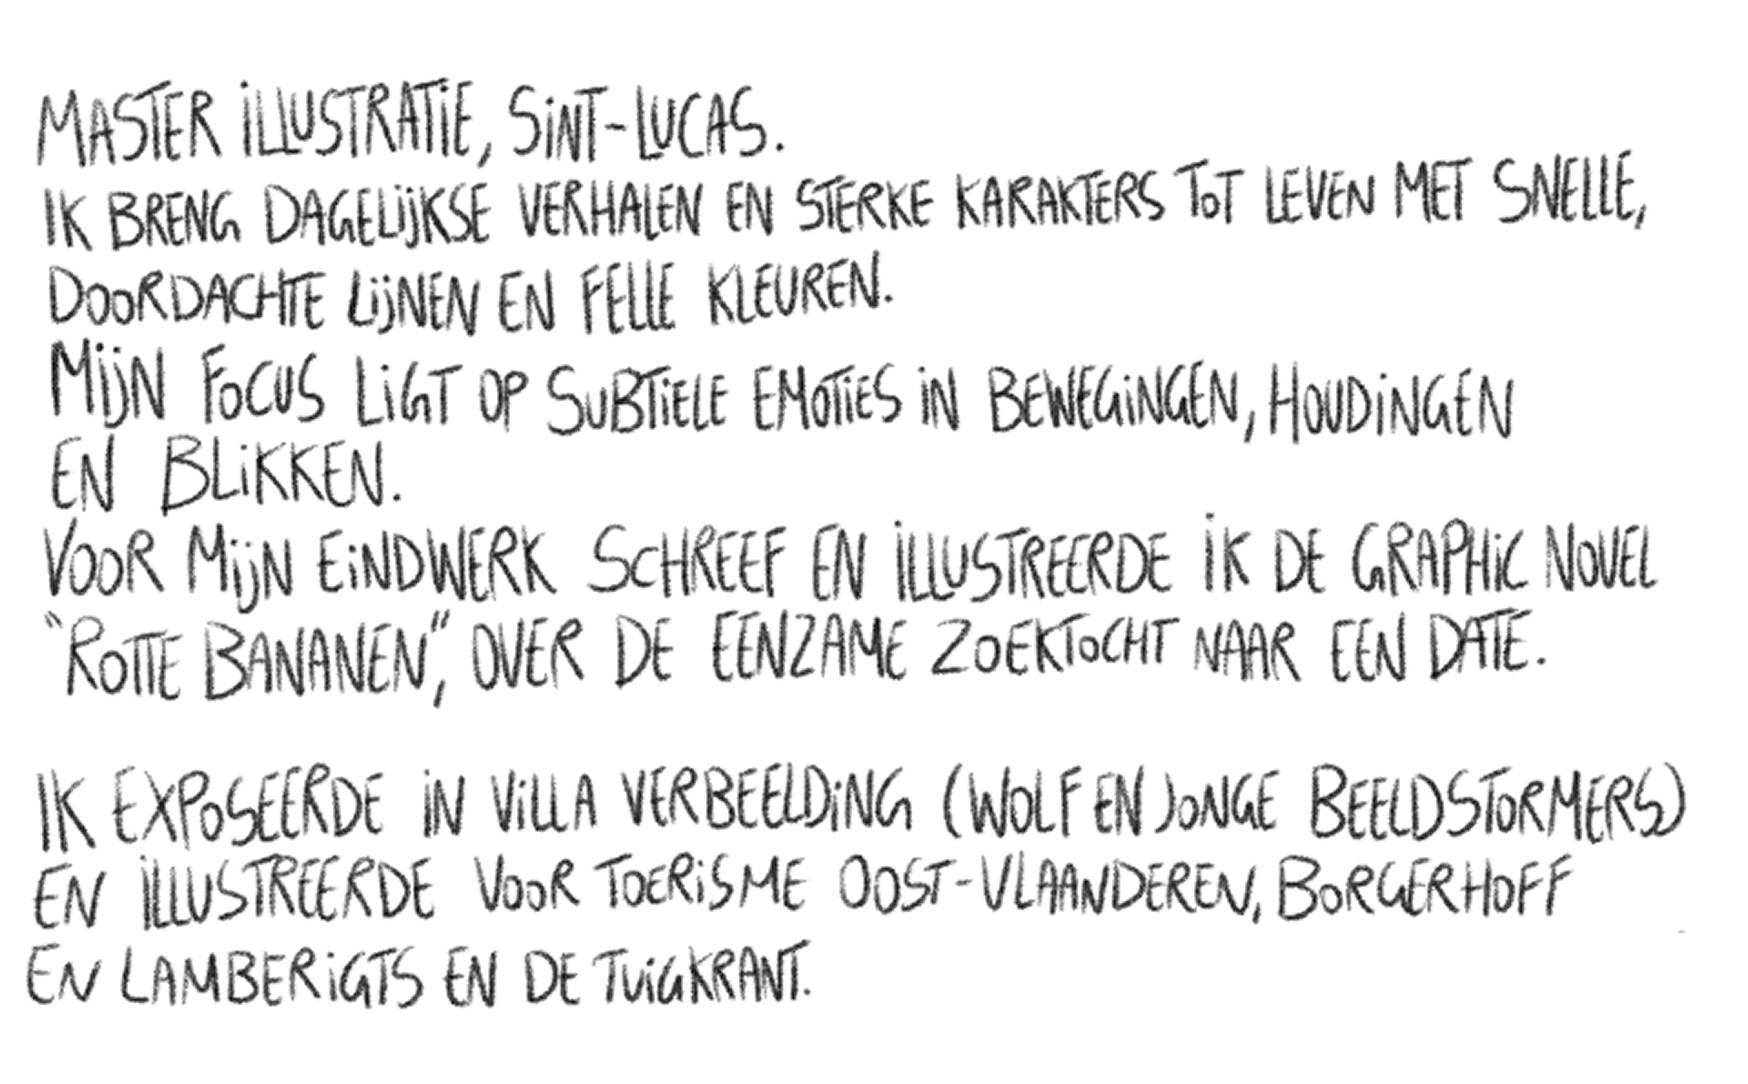 MASTER ILLUSTRATIE, SINT-LUCAS.
IK BRENG DAGELIJKSE VERHALEN EN STERKE KARAKTERS TOT LEVEN MET SNELLE,
DOORDACHTE LIJNEN EN FELLE KLEUREN.
MIJN FOCUS LIGT OP SUBTIELE EMOTIES IN BEWEGINGEN, HOUDINGEN
EN BLIKKEN.
VOOR MIJN EINDWERK SCHREEF EN ILLUSTREERDE IK DE GRAPHIC NOVEL
"ROTTE BANANEN", OVER DE EENZAME ZOEKTOCHT NAAR EEN DATE.
IK EXPOSEERDE IN VILLA VERBEELDING (WOLF EN JONGE BEELDSTORMERS)
EN ILLUSTREERDE VOOR TOERISME OOST-VLAANDEREN, BORGERHOFF
EN LAMBERIGTS EN DE TUIGKRANT.